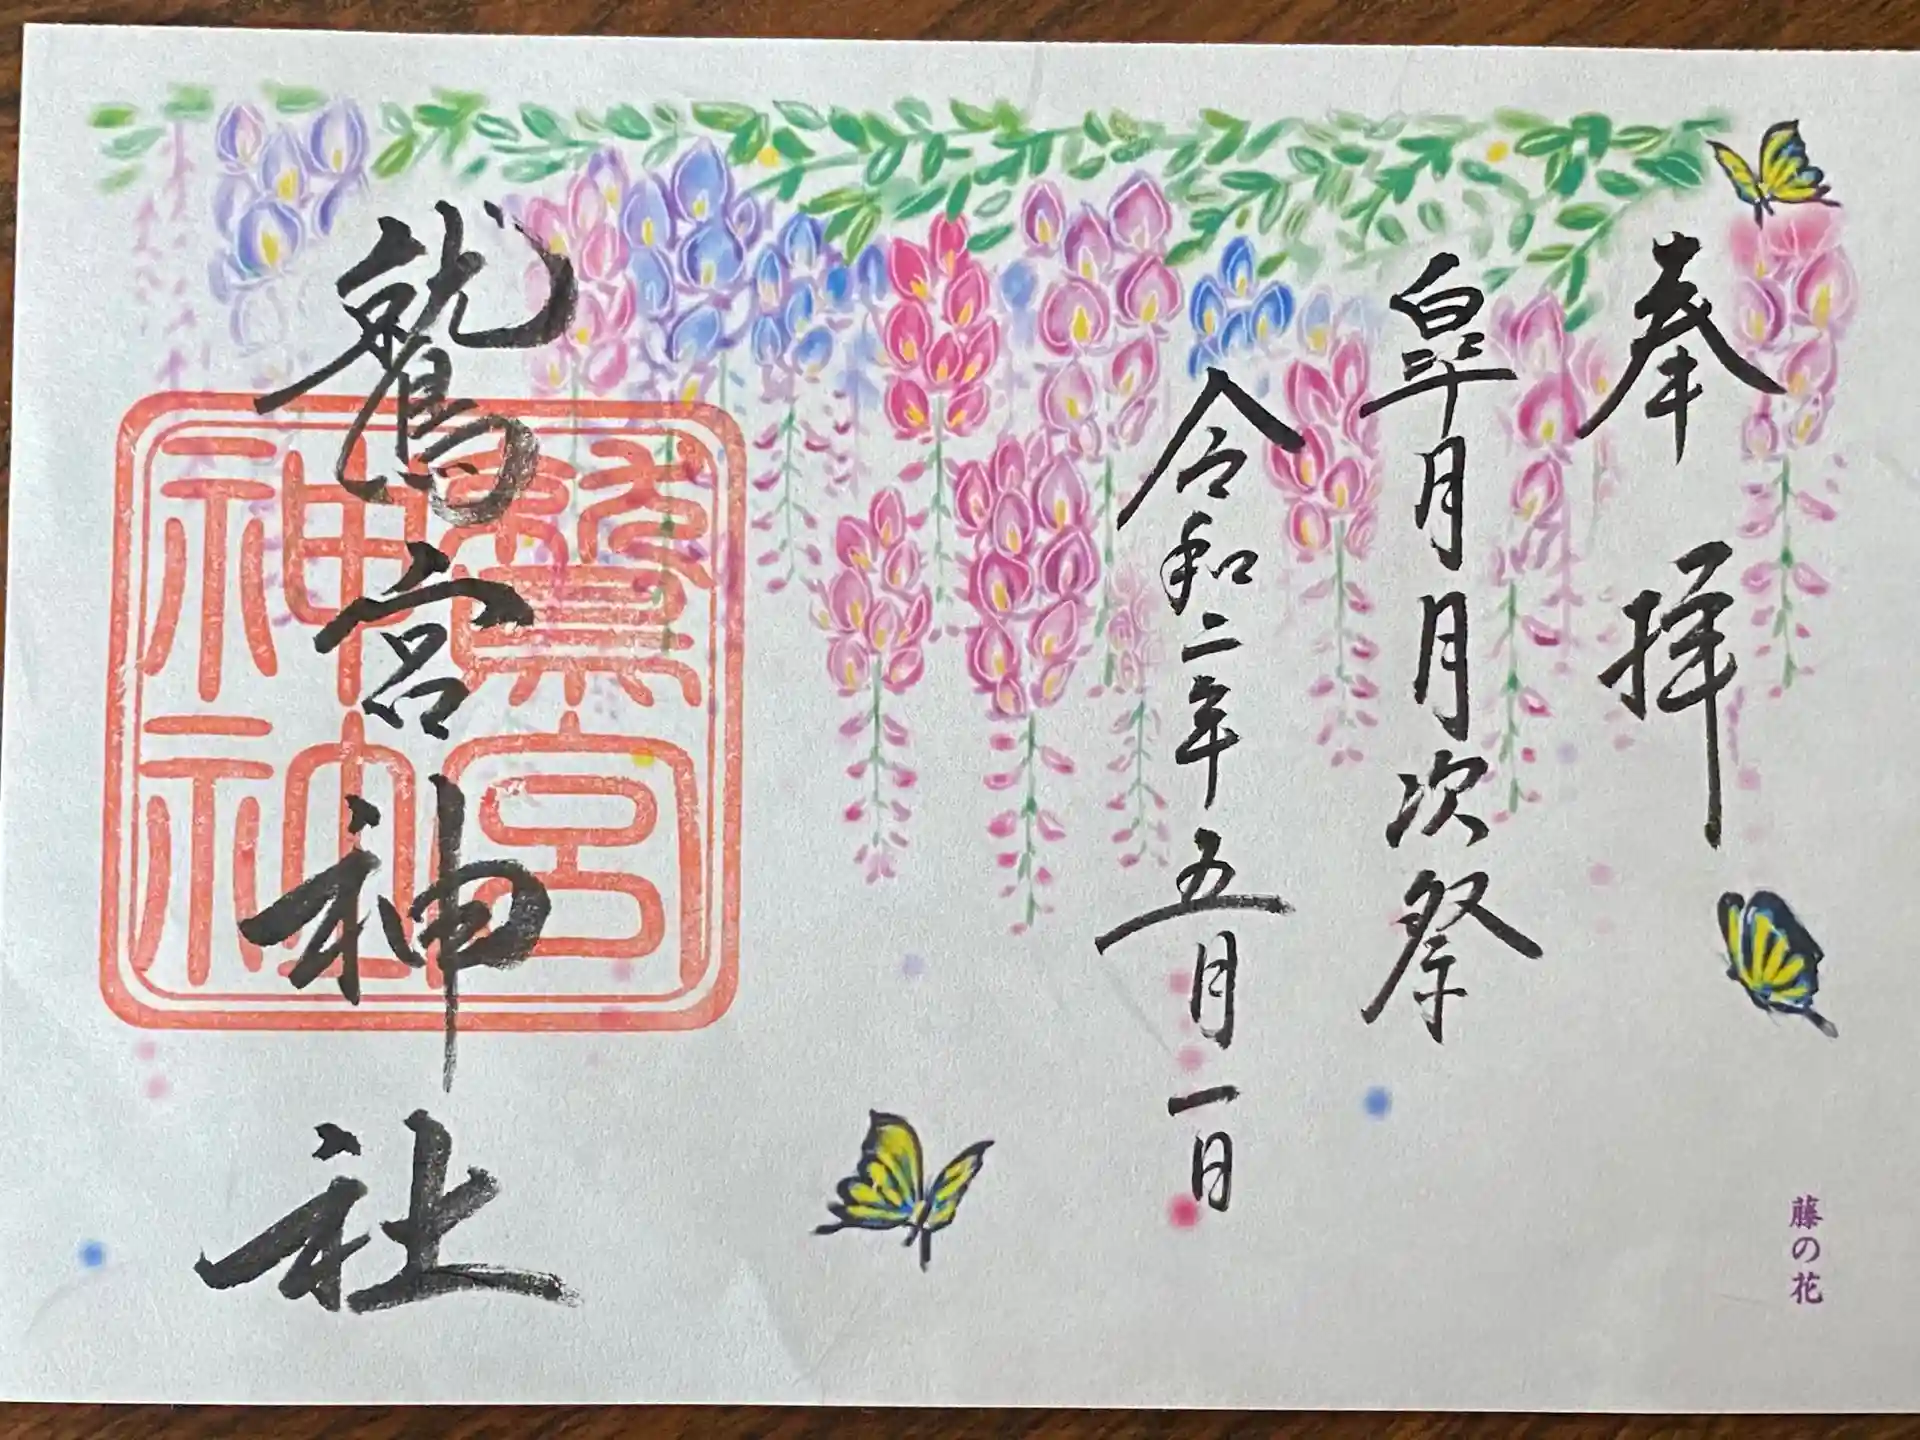 奉拝
皐月月次祭
令和二年五月一日
鷲宮神社
鷲宮神社
藤の花